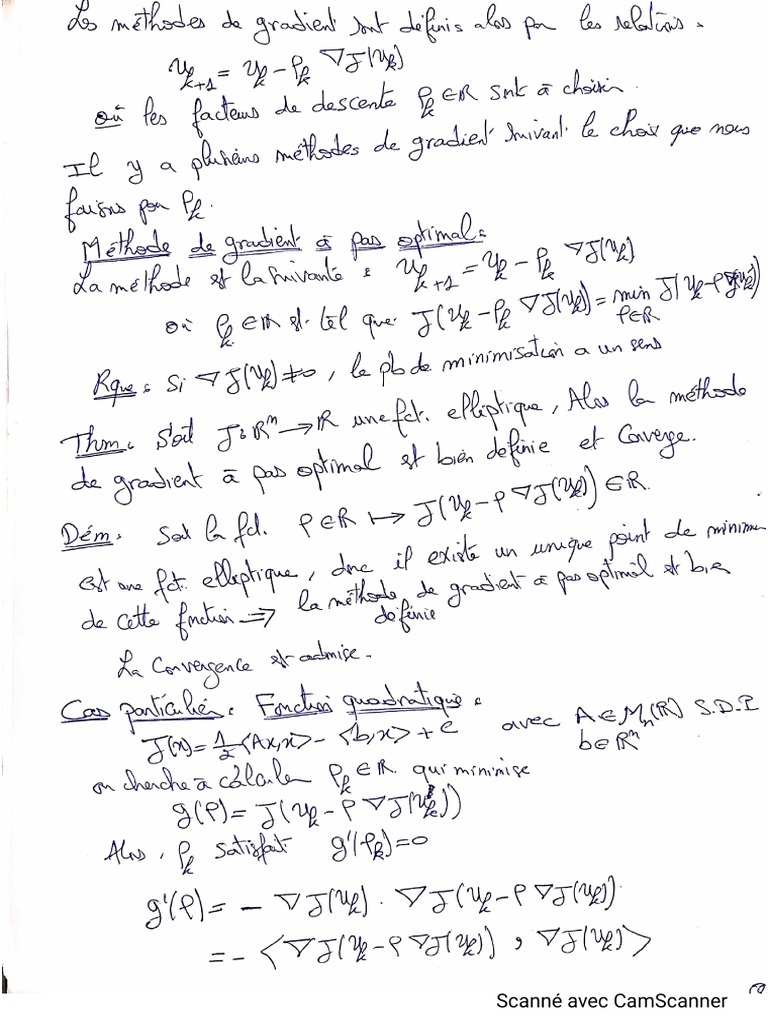 Les méthodes de gradient sont définis alors par les relations :
u_{k+1} = u_k - ρ_k ∇J(u_k)
où les facteurs de descente ρ_k ∈ ℝ sont à choisir.
Il y a plusieurs méthodes de gradient suivant le choix que nous
faisons pour ρ_k.
Méthode de gradient à pas optimal :
La méthode est la suivante : u_{k+1} = u_k - ρ_k ∇J(u_k)
où ρ_k ∈ ℝ est tel que J(u_k - ρ_k ∇J(u_k)) = min_{ρ∈ℝ} J(u_k - ρ∇J(u_k))
Rque : Si ∇J(u_k) ≠ 0, le pb de minimisation a un sens
Thm : Soit J : ℝⁿ → ℝ une fct. elliptique, Alors la méthode
de gradient à pas optimal est bien définie et Converge.
Dém : Soit la fct. ρ ∈ ℝ ↦ J(u_k - ρ ∇J(u_k)) ∈ ℝ.
est une fct. elliptique, donc il existe un unique point de minimum
de cette fonction ⟹ la méthode de gradient à pas optimal est bien
définie
La Convergence est admise.
Cas particulier : Fonction quadratique :
J(x) = 1/2 <Ax,x> - <b,x> + c avec A ∈ M_n(ℝ) S.D.P
b ∈ ℝⁿ
on cherche à calculer ρ_k ∈ ℝ qui minimise
g(ρ) = J(u_k - ρ ∇J(u_k))
Alors, ρ_k satisfait g'(ρ_k) = 0
g'(ρ) = - ∇J(u_k) . ∇J(u_k - ρ ∇J(u_k))
= - < ∇J(u_k - ρ ∇J(u_k)) , ∇J(u_k) >
Scanné avec CamScanner